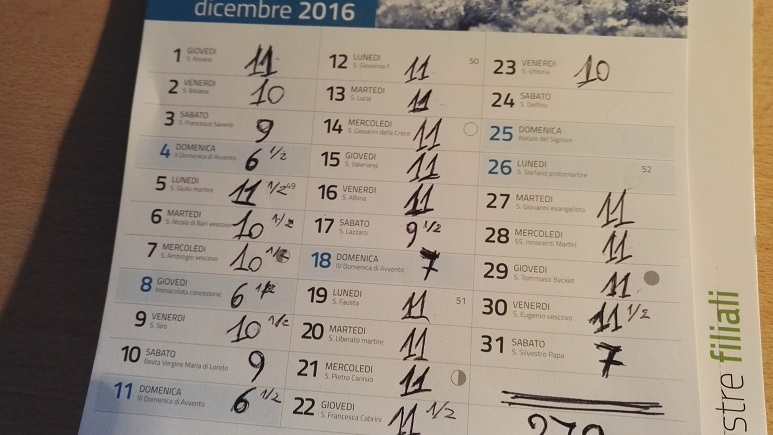 dicembre 2016
1 GIOVEDI 11
S. Ansano
2 VENERDI 10
S. Bibiana
3 SABATO 9
S. Francesco Saverio
4 DOMENICA 6 1/2
II Domenica di Avvento
5 LUNEDI 11 1/2 49
S. Giulio martire
6 MARTEDI 10 1/2
S. Nicola di Bari vescovo
7 MERCOLEDI 10 1/2
S. Ambrogio vescovo
8 GIOVEDI 6 1/2
Immacolata concezione
9 VENERDI 10 1/2
S. Siro
10 SABATO 9
Beata Vergine Maria di Loreto
11 DOMENICA 6 1/2
III Domenica di Avvento
12 LUNEDI 11 50
S. Giovanna F.
13 MARTEDI 11
S. Lucia
14 MERCOLEDI 11
S. Giovanni della Croce
15 GIOVEDI 11
S. Valeriano
16 VENERDI 11
S. Albina
17 SABATO 9 1/2
S. Lazzaro
18 DOMENICA 7
IV Domenica di Avvento
19 LUNEDI 11 51
S. Fausta
20 MARTEDI 11
S. Liberato martire
21 MERCOLEDI 11
S. Pietro Canisio
22 GIOVEDI 11 1/2
S. Francesca Cabrini
23 VENERDI 10
S. Vittoria
24 SABATO
S. Delfino
25 DOMENICA
Natale del Signore
26 LUNEDI 52
S. Stefano protomartire
27 MARTEDI 11
S. Giovanni evangelista
28 MERCOLEDI 11
SS. Innocenti Martiri
29 GIOVEDI 11
S. Tommaso Becket
30 VENERDI 11 1/2
S. Eugenio vescovo
31 SABATO 7
S. Silvestro Papa
filiali